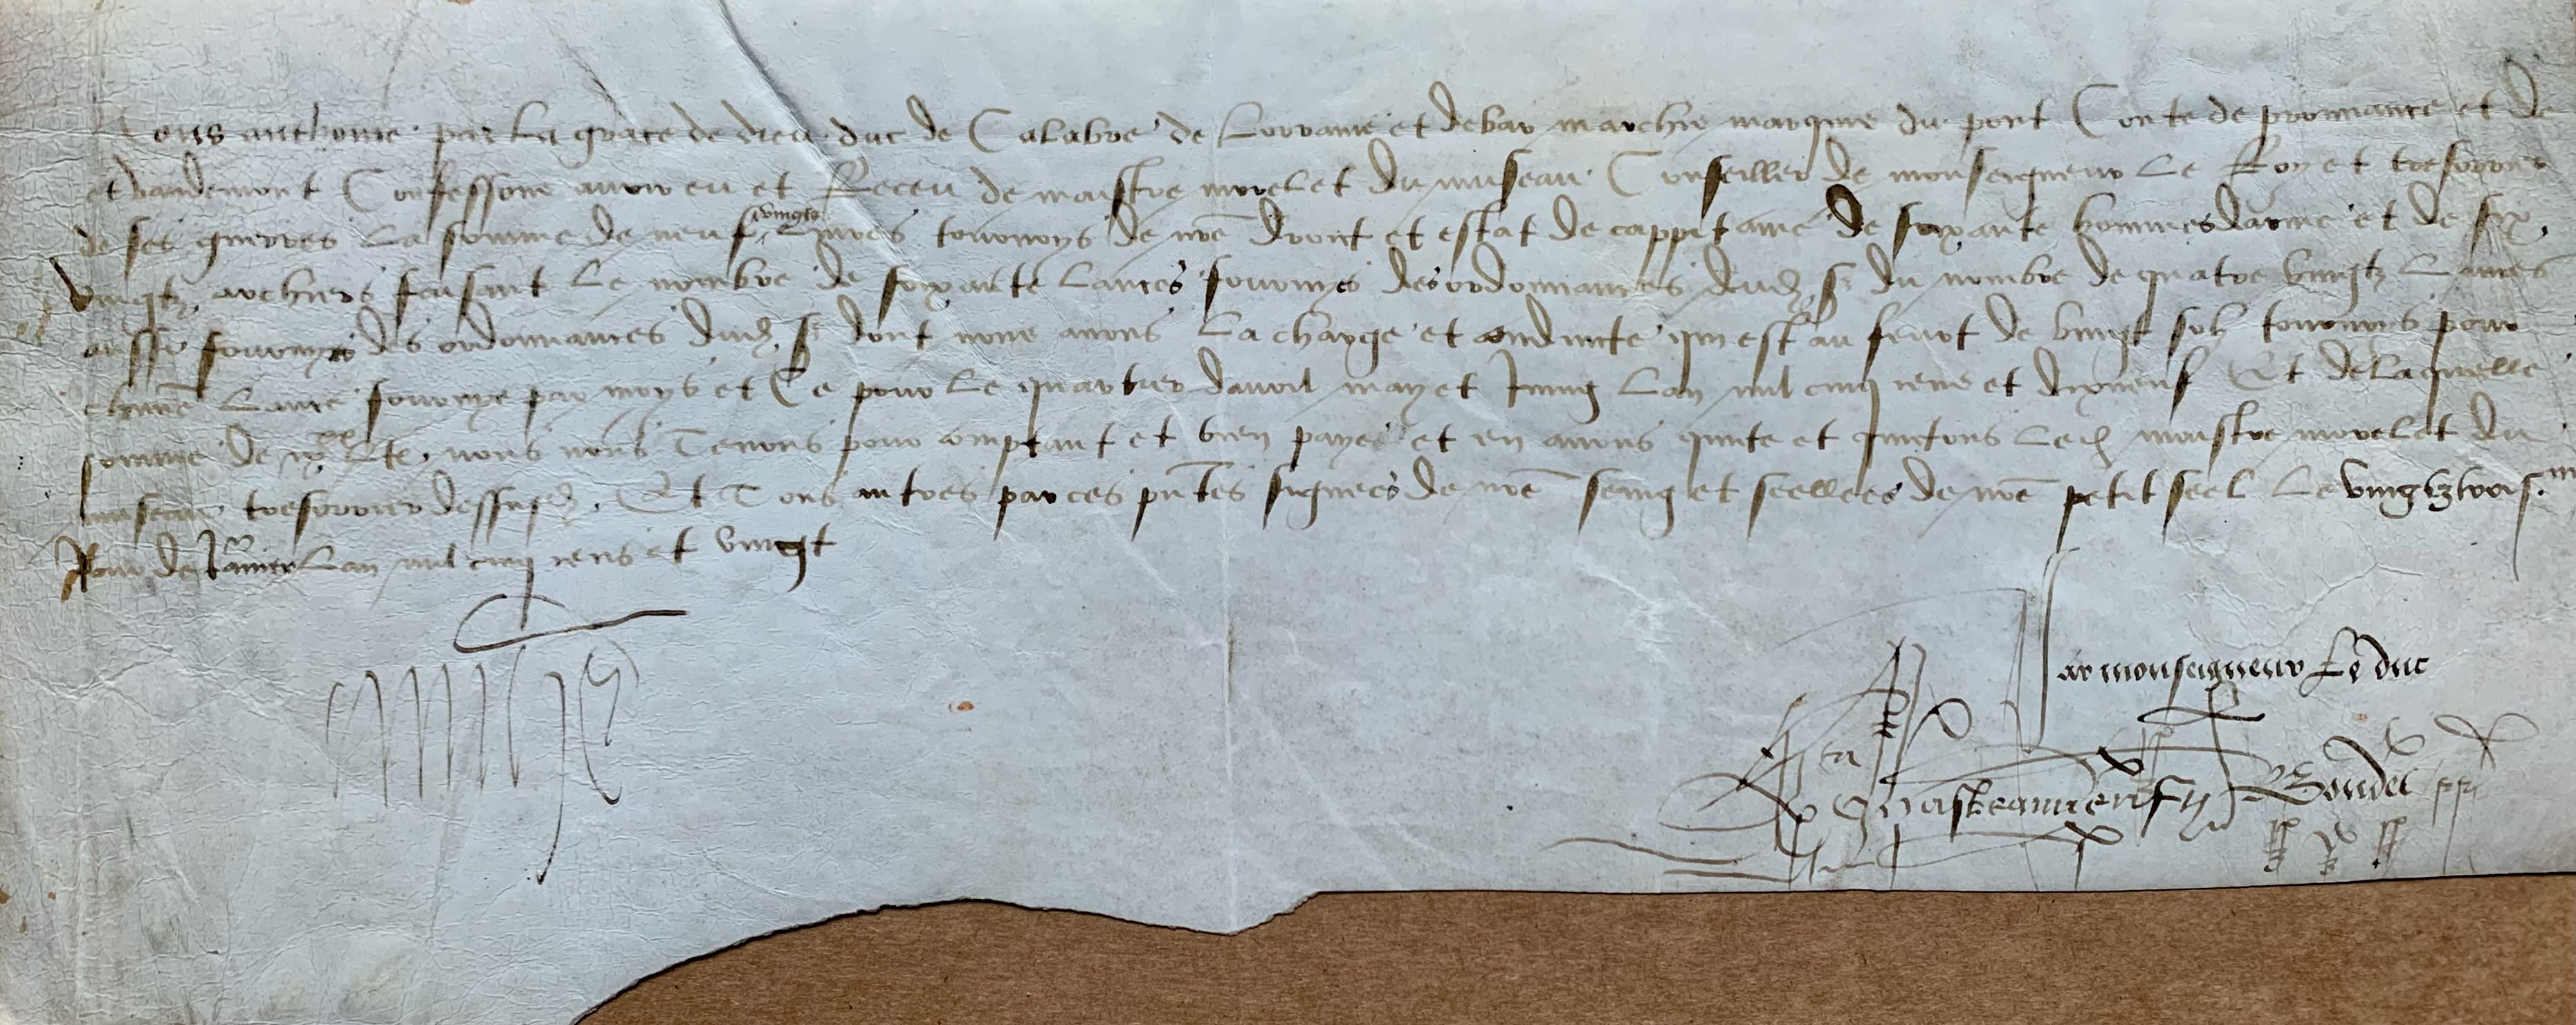 Nous anthoine par la grace de dieu duc de Calabre de Lorraine et de bar marchis marquis du pont Conte de prouuance et de
et vaudemont Confessons auoir eu et Receu de maistre morelet du museau Conseiller de monseigneur le Roy et tresorier
de ses guerres La somme de neuf vingts Liures tournoys de nre droit et estat de cappitaine de soixante hommes darme et de six
vingtz archiers faisant le nombre de soixante lances fournies des ordonnances dud sr du nombre de quatre vingtz Lances
aussi fournyes des ordonnances dud sr dont nous auons La charge et conduicte qui est au feurt de vingt solz tournoys pour
chune Lance fournye par moys et Ce pour le quartier dauril may et Juing Lan mil cinq cens et dixneuf Et de laquelle
somme de ix xx l t nous nous Tenons pour comptant et bien payez et en auons quicte et quictons led maistre morelet du
museau tresorier dessusd Et Tous autres par ces pntes signees de nre seing et seellees de nre petit seel Le vingtztrois me
Jour de Januier Lan mil cinq cens et vingt
Anthoine
Par monseigneur Le duc